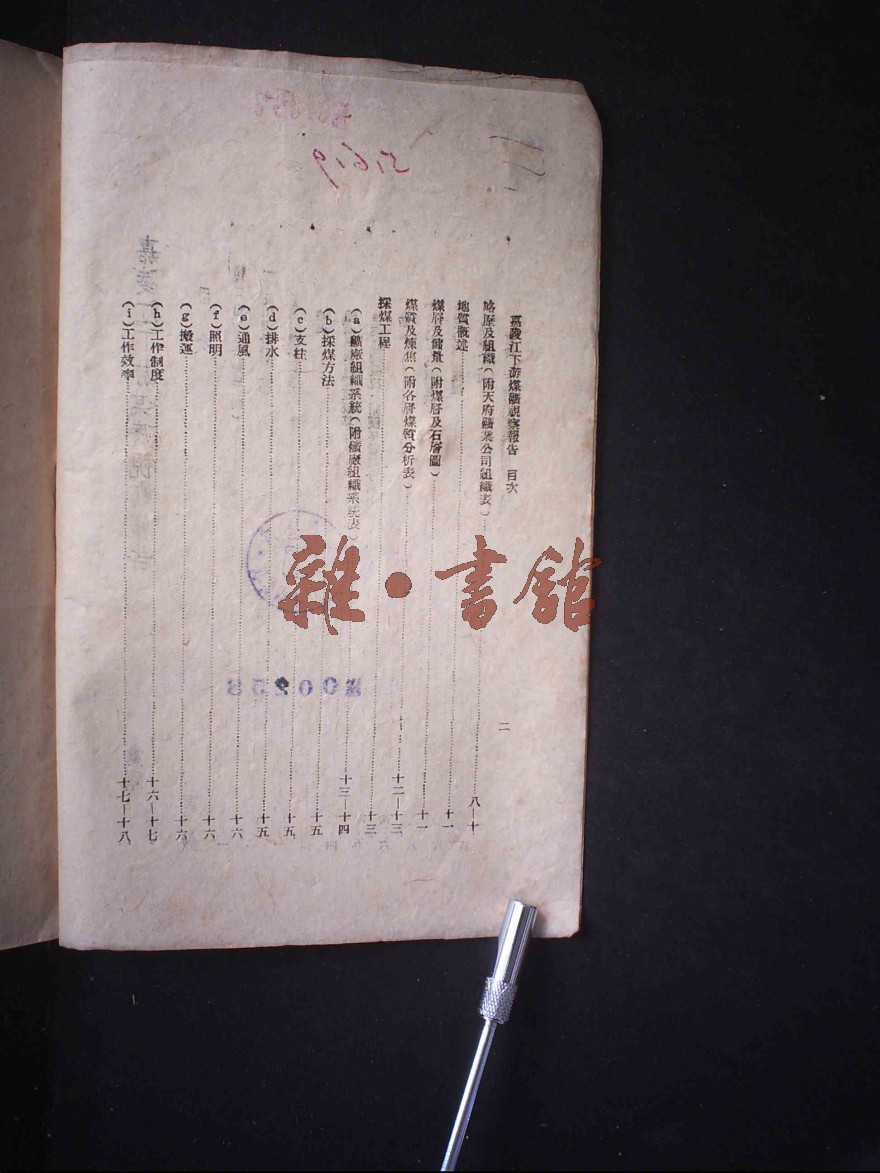 嘉陵江下游煤礦視察報告　目次
二
略歷及組織(附天府礦業公司組織表)……八—十
地質概述……十一
煤層及儲量(附煤層及石層圖)……十一
煤質及煉焦(附各層煤質分析表)……十二—十三
採煤工程……十三
(a)礦廠組織系統(附礦廠組織系統表)……十三—十四
(b)採煤方法……十五
(c)支柱……十五
(d)排水……十五
(e)通風……十六
(f)照明……十六
(g)搬運……十六
(h)工作制度……十六—十七
(i)工作效率……十七—十八
雜·書館